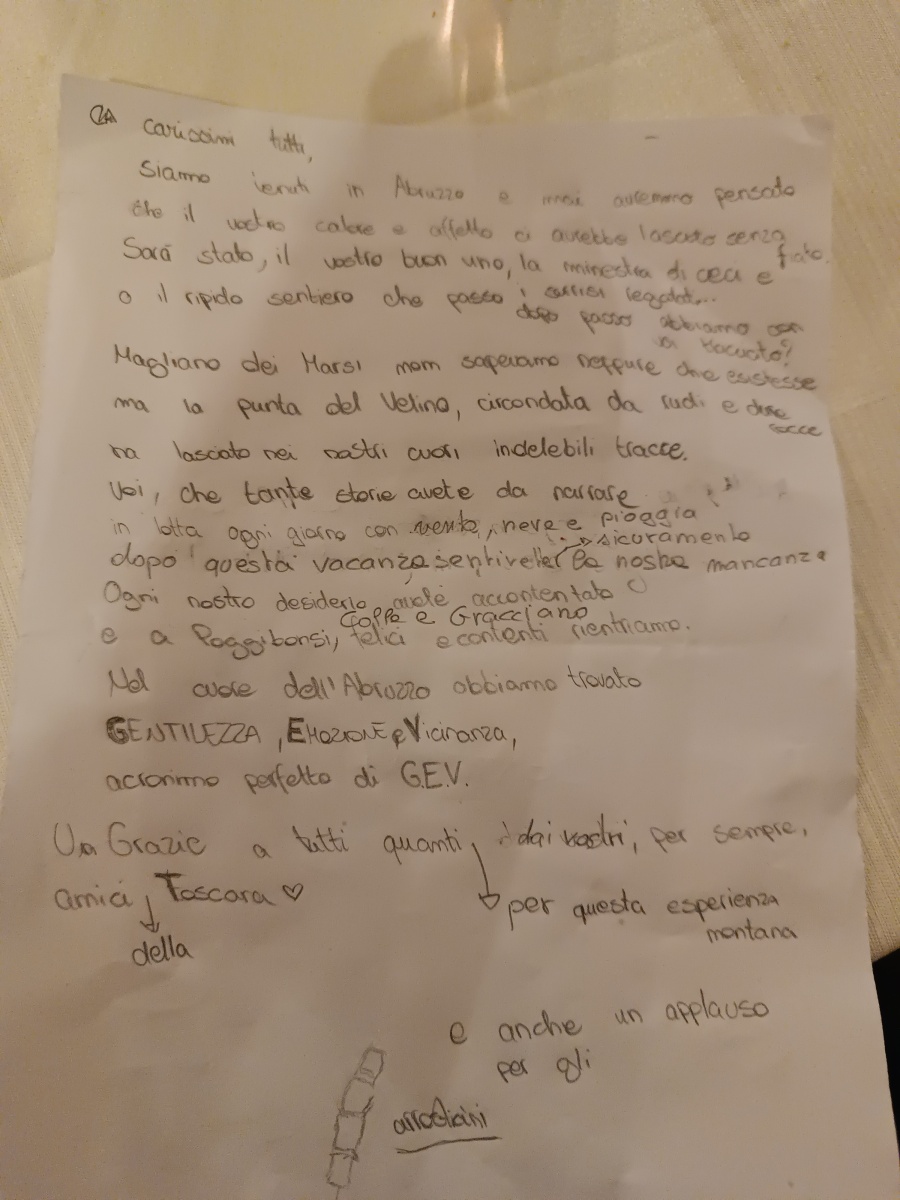 2A Carissimi tutti,
Siamo venuti in Abruzzo e mai avremmo pensato
che il vostro calore e affetto ci avrebbe lasciato senza
fiato.
Sará stato, il vostro buon vino, la minestra di ceci e
i sorrisi regalat...
o il ripido sentiero che passo
dopo passo abbiamo con
Magliano dei Marsi non sapevamo neppure che esistesse
ma la punta del Velino, circondata da rudi e dure
rocce
ha lasciato nei nostri cuori indelebili tracce.
Voi, che tante storie avete da narrare
in lotta ogni giorno con vento, neve e pioggia
sicuramento
dopo questa vacanza sentirete la nostra mancanza
Ogni nostro desiderio avete accontentato
Colle e Gracciano
e a Poggibonsi, felici e contenti rientriamo.
Nel cuore dell'Abruzzo abbiamo trovato
GENTILEZZA, EMOZIONE e Vicinanza,
acronimo perfetto di G.E.V.
Un Grazie a tutti quanti, dai vostri, per sempre,
amici, Toscana ♡
per questa esperienza
montana
della
e anche un applauso
per gli
arrosticini